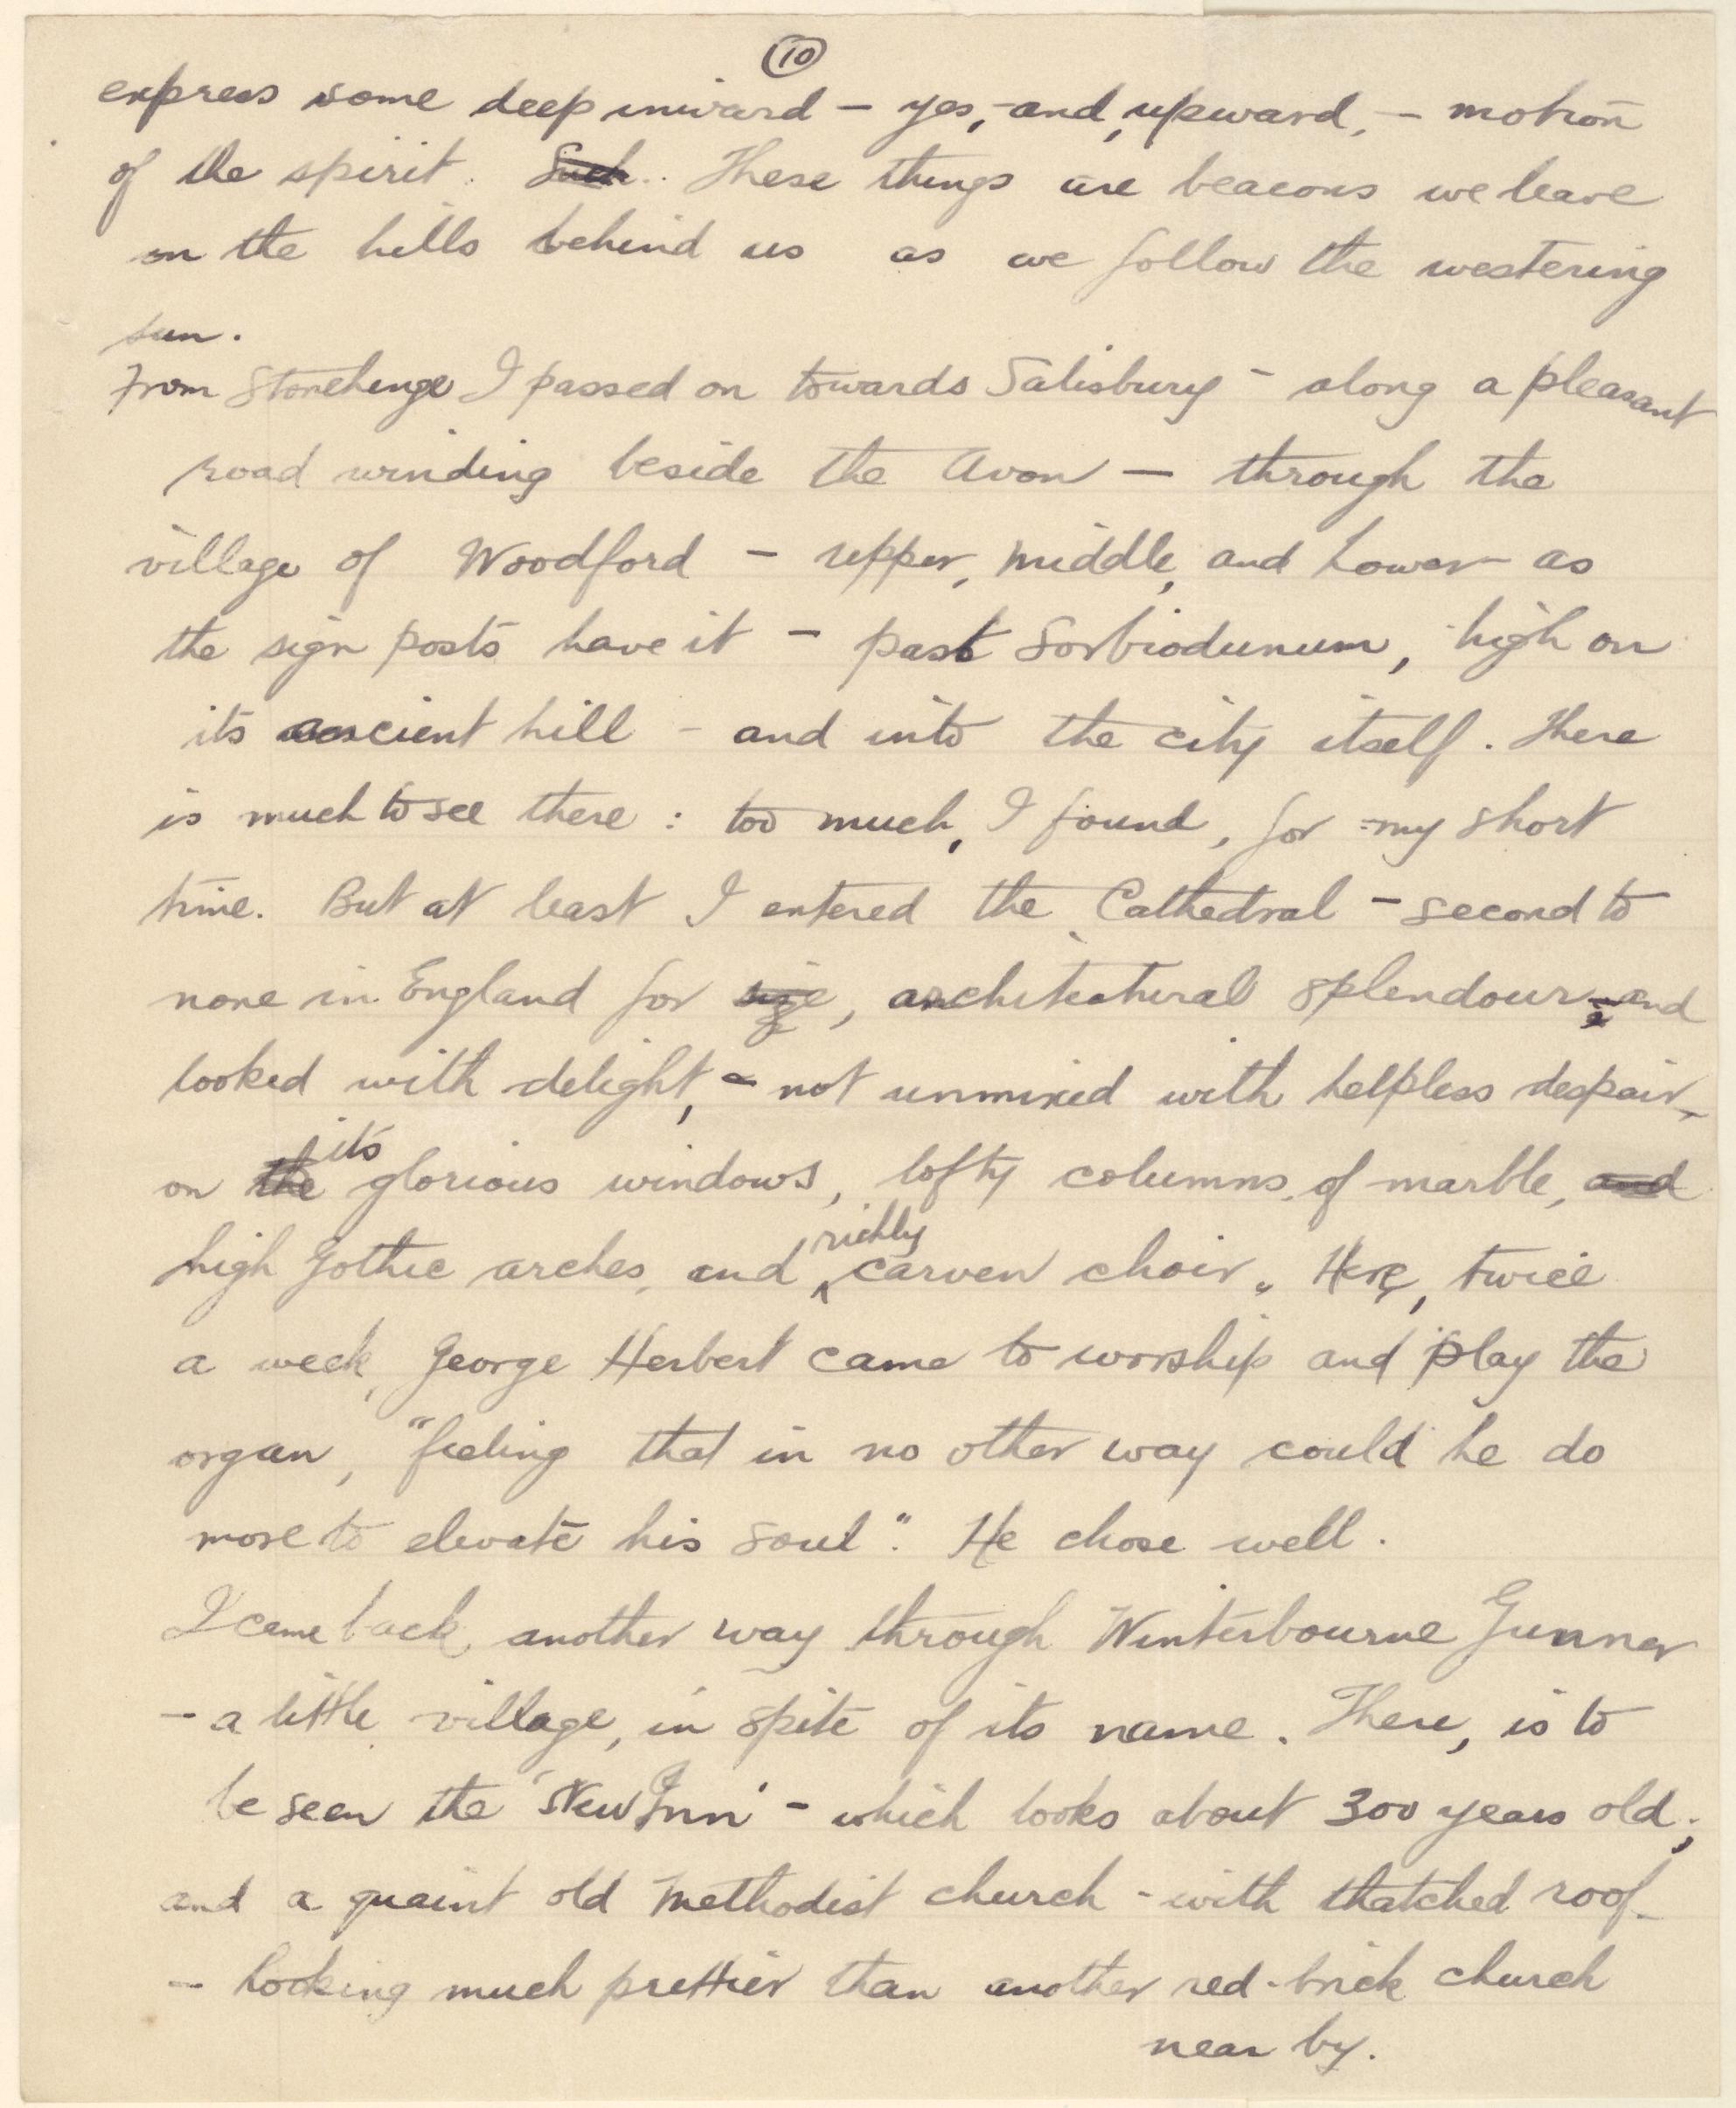 10
express some deep inward – yes, – and, upward, – motion
of the spirit. Such.. These things are beacons we leave
on the hills behind us as we follow the westering
sun.
From Stonehenge I passed on towards Salisbury – along a pleasant
road winding beside the Avon – through the
village of Woodford – upper, middle, and Lower – as
the sign posts have it – past Sorbiodunum, high on
its ancient hill – and into the city itself. There
is much to see there : too much, I found, for my short
time. But at least I entered the Cathedral – second to
none in England for size, architectural splendour, – and
looked with delight, – not unmixed with helpless despair, –
on the its glorious windows, lofty columns of marble, and
high Gothic arches, and richly carven choir. Here, twice
a week, George Herbert came to worship and play the
organ, "feeling that in no other way could he do
more to elevate his soul". He chose well.
I came back another way through Winterbourne Gunner
– a little village, in spite of its name. There, is to
be seen the 'New Inn' – which looks about 300 years old;
and a quaint old Methodist church – with thatched roof –
– looking much prettier than another red-brick church
near by.